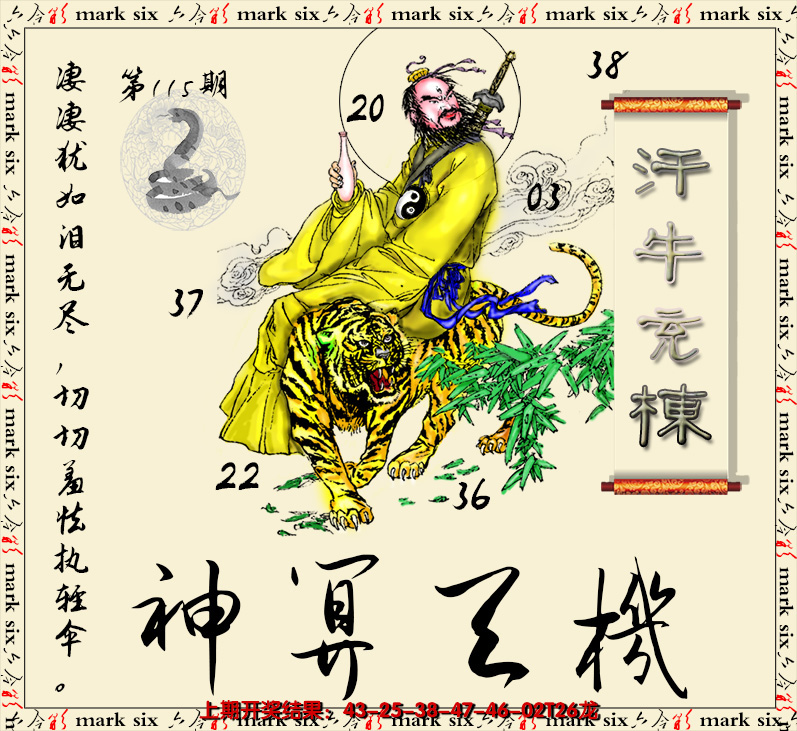 mark six mark six mark six mark six
第115期
凄凄犹如泪无尽，切切羞怯执轻伞。
38
20
03
37
22
36
汗牛充棟
神算天機
上期开奖结果：43-25-38-47-46-02T26龙
mark six mark six mark six mark six mark six